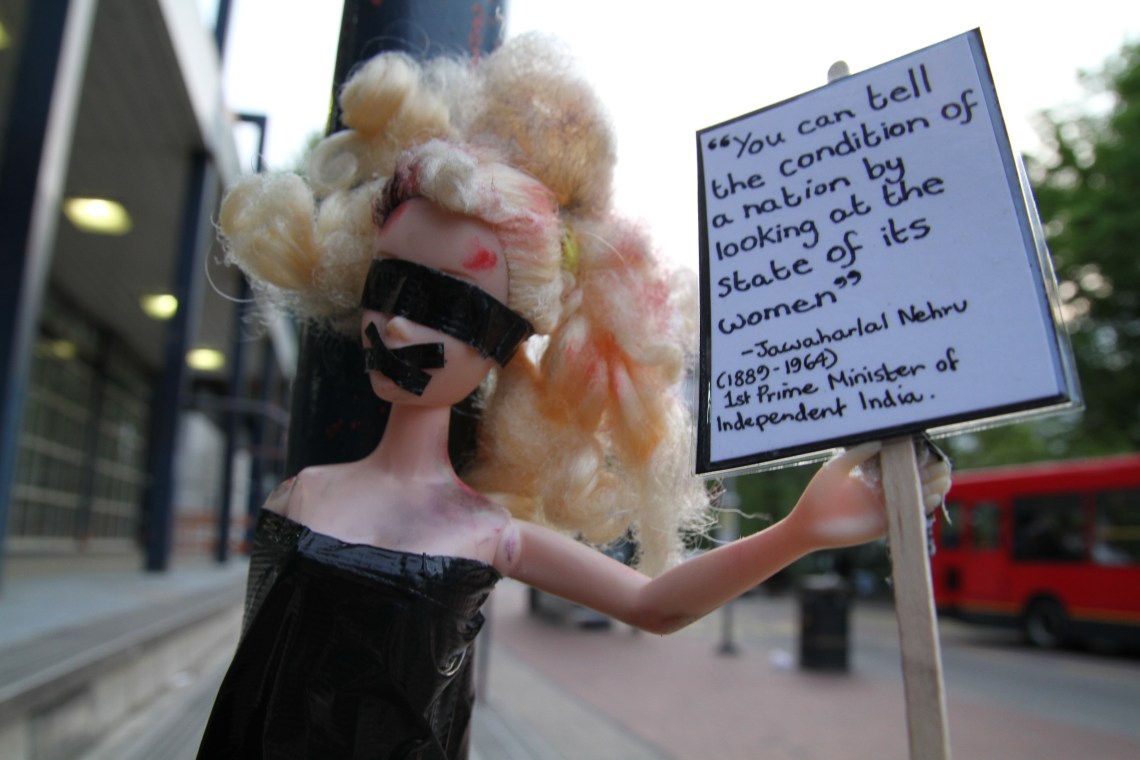 “You can tell
the condition of
a nation by
looking at the
state of its
women”
-Jawaharlal Nehru
(1889-1964)
1st Prime Minister of
Independent India.